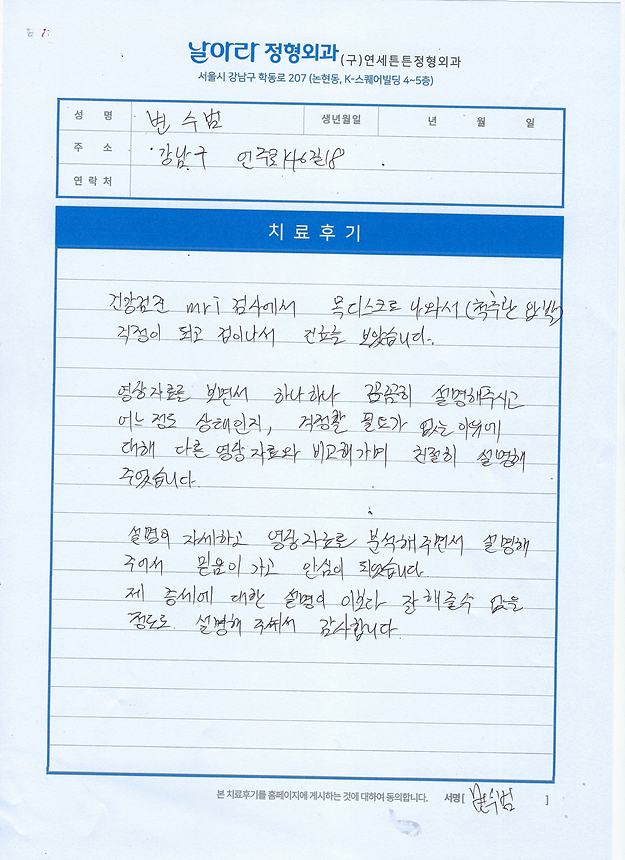 날아라 정형외과 (구)연세튼튼정형외과
서울시 강남구 학동로 207 (논현동, K-스퀘어빌딩 4~5층)
성 명 변 수범 생년월일 년 월 일
주 소 강남구 언주로146길18
연 락 처
치 료 후 기
건강검진 mri 검사에서 목디스크로 나와서 (척추관 압박)
걱정이 되고 겁이나서 진료를 보았습니다.
영상자료를 보면서 하나하나 꼼꼼히 설명해주시고
어느정도 상태인지, 걱정할 필요가 없는 이유에
대해 다른 영상자료와 비교해가며 친절히 설명해
주었습니다.
설명이 자세하고 영상자료로 분석해주면서 설명해
주어서 믿음이 가고 안심이 되었습니다.
제 증세에 대한 설명이 이보다 잘해줄수 없을
정도로 설명해 주셔서 감사합니다.
본 치료후기를 홈페이지에 게시하는 것에 대하여 동의합니다. 서명 [ 변수범 ]